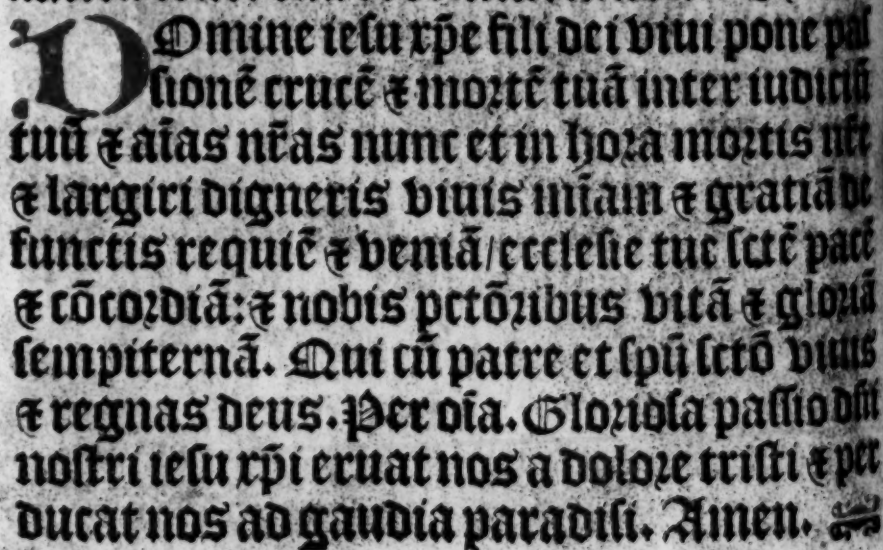 DOmine iesu xp̄e fili dei viui pone pas
sionē crucē ⁊ mortē tuā inter iudiciū
tuū ⁊ aīas nr̄as nunc et in hora mortis nr̄e
⁊ largiri digneris viuis mīam ⁊ gratiā de
functis requiē ⁊ veniā/ecclesie tue sctē pacē
⁊ cōcordiā:⁊ nobis pctōribus vitā ⁊ gloriā
sempiternā. Qui cū patre et spū sctō viuis
⁊ regnas deus. Per oīa. Gloriosa passio dn̄i
nostri iesu xp̄i eruat nos a dolore tristi ⁊ per
ducat nos ad gaudia paradisi. Amen.